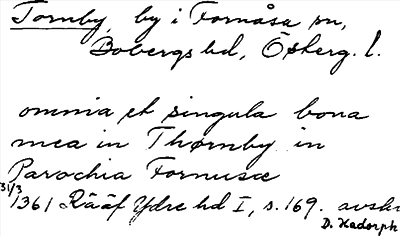 Tornby, by i Fornåsa sn,
Bobergs hd, Österg. l.
omnia et singula bona
mea in Thørnby in
Parochia Fornusæ
31/3 1361 Rääf Ydre hd I, s. 169. avskr
D. Hadorph